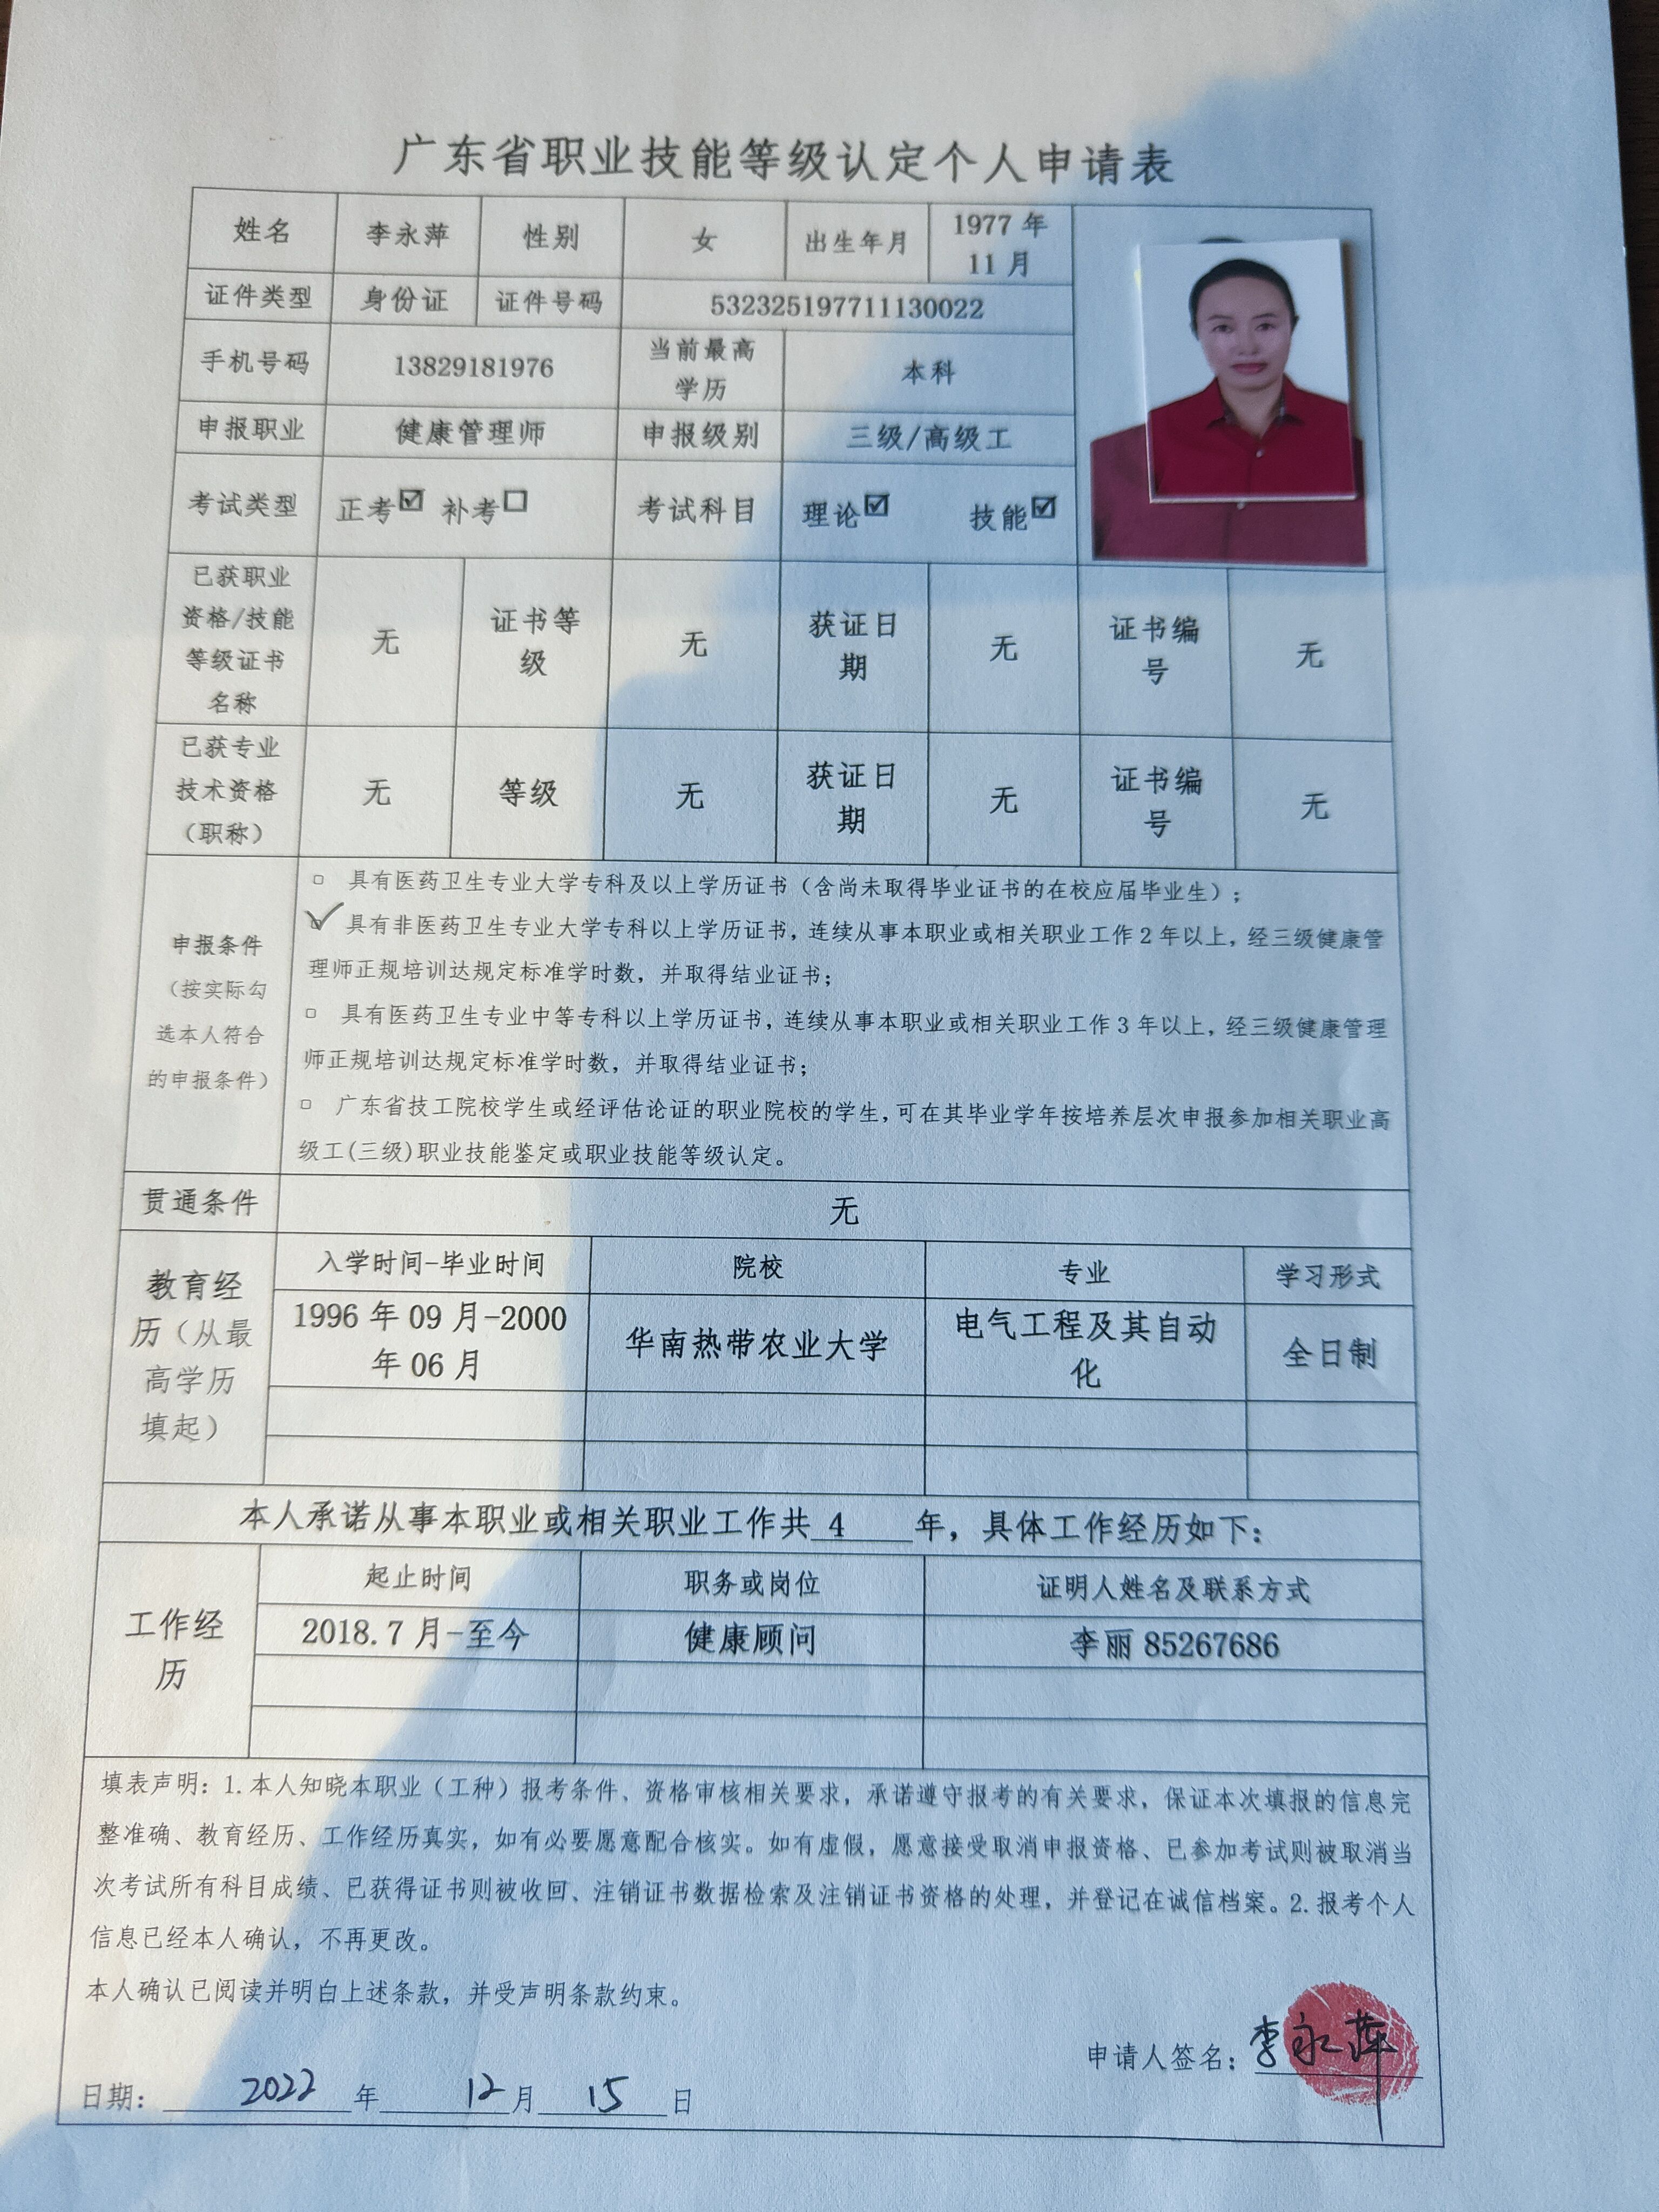 广东省职业技能等级认定个人申请表
姓名 李永萍 性别 女 出生年月 1977 年
11 月
证件类型 身份证 证件号码 532325197711130022
手机号码 13829181976 当前最高
学历 本科
申报职业 健康管理师 申报级别 三级/高级工
考试类型 正考☑ 补考☐ 考试科目 理论☑ 技能☑
已获职业
资格/技能
等级证书
名称 无 证书等
级 无 获证日
期 无 证书编
号 无
已获专业
技术资格
（职称） 无 等级 无 获证日
期 无 证书编
号 无
申报条件
（按实际勾
选本人符合
的申报条件）
□ 具有医药卫生专业大学专科及以上学历证书（含尚未取得毕业证书的在校应届毕业生）；
☑ 具有非医药卫生专业大学专科以上学历证书，连续从事本职业或相关职业工作 2 年以上，经三级健康管
理师正规培训达规定标准学时数，并取得结业证书；
□ 具有医药卫生专业中等专科以上学历证书，连续从事本职业或相关职业工作 3 年以上，经三级健康管理
师正规培训达规定标准学时数，并取得结业证书；
□ 广东省技工院校学生或经评估论证的职业院校的学生，可在其毕业学年按培养层次申报参加相关职业高
级工(三级)职业技能鉴定或职业技能等级认定。
贯通条件 无
教育经
历（从最
高学历
填起）
入学时间-毕业时间 院校 专业 学习形式
1996 年 09 月-2000
年 06 月 华南热带农业大学 电气工程及其自动
化 全日制
本人承诺从事本职业或相关职业工作共 4 年，具体工作经历如下：
工作经
历
起止时间 职务或岗位 证明人姓名及联系方式
2018.7 月-至今 健康顾问 李丽 85267686
填表声明：1.本人知晓本职业（工种）报考条件、资格审核相关要求，承诺遵守报考的有关要求，保证本次填报的信息完
整准确、教育经历、工作经历真实，如有必要愿意配合核实。如有虚假，愿意接受取消申报资格、已参加考试则被取消当
次考试所有科目成绩、已获得证书则被收回、注销证书数据检索及注销证书资格的处理，并登记在诚信档案。2.报考个人
信息已经本人确认，不再更改。
本人确认已阅读并明白上述条款，并受声明条款约束。
申请人签名：李永萍
日期： 2022 年 12 月 15 日